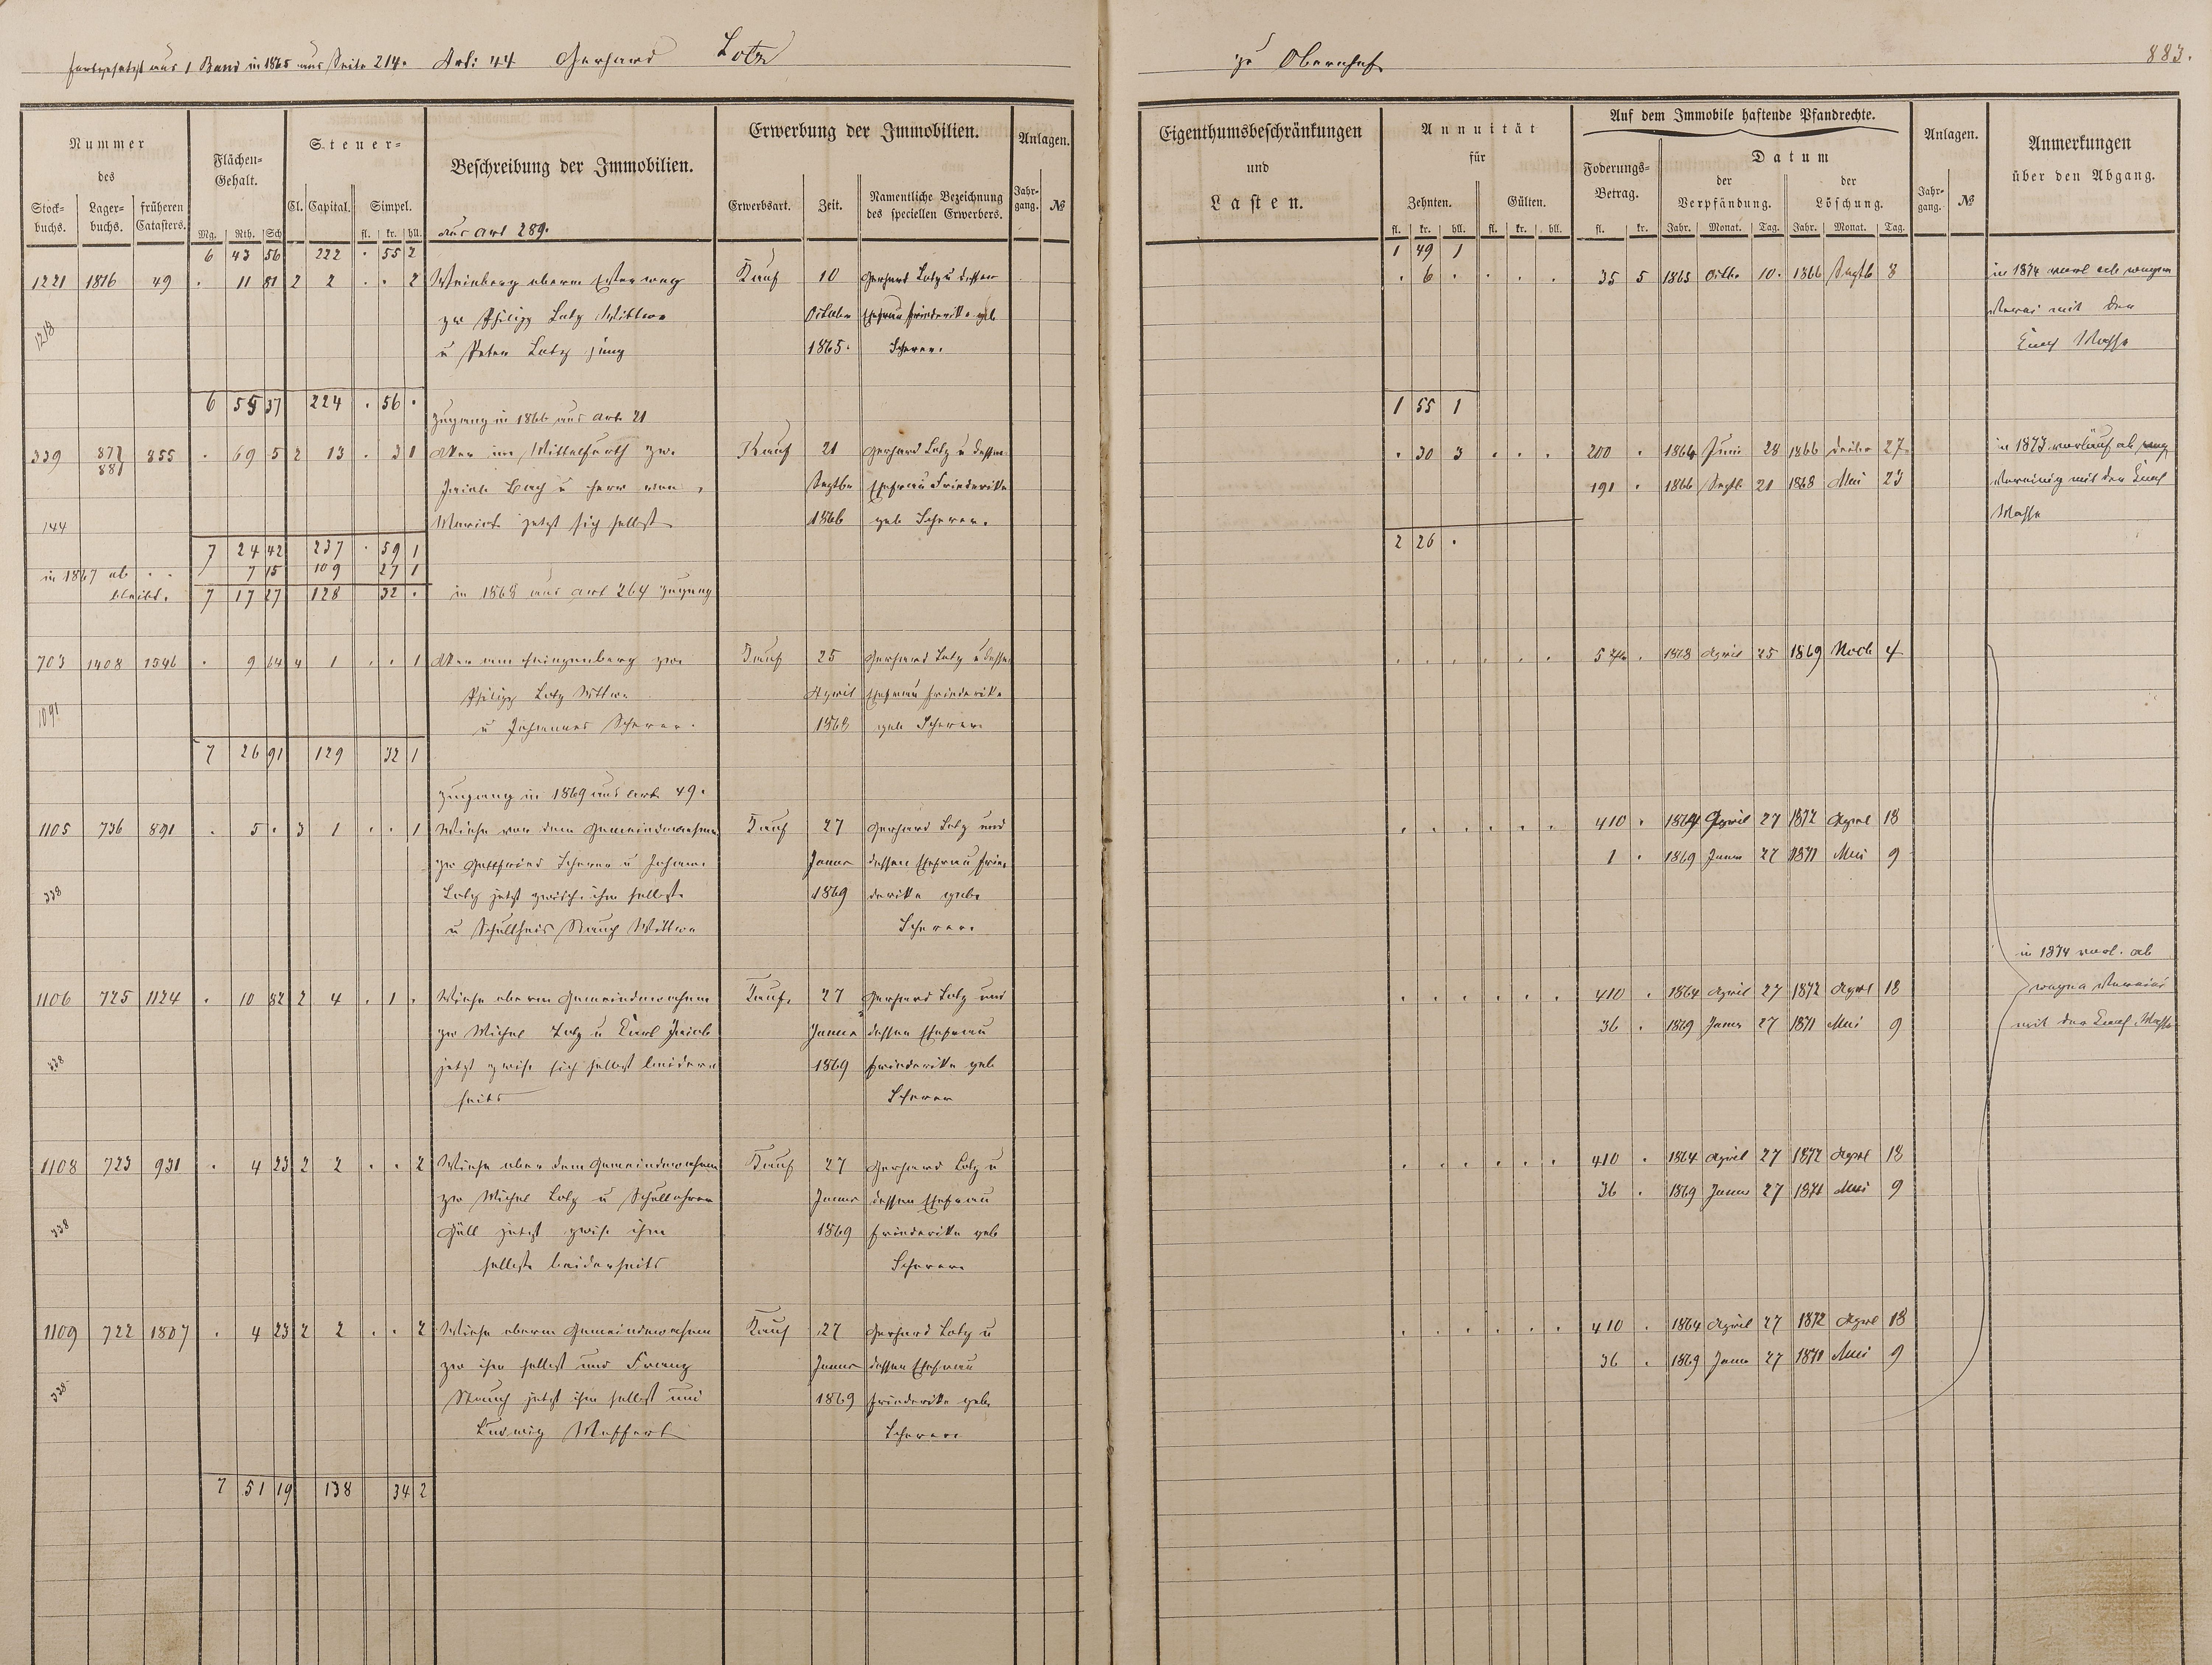 fortgesetzt aus 1 Band in 1865 aus Seite 214. Art: 44 Gerhard Lotz
zu Obernhof
883.
Nummer des
Stock-buchs. Lager-buchs. früheren Catasters.
Flächen-Gehalt.
Mg. Rth. Sch
Steuer-
Cl. Capital. Simpel.
fl. kr. hll.
Beschreibung der Immobilien.
Erwerbung der Immobilien.
Erwerbsart. Zeit. Namentliche Bezeichnung des speciellen Erwerbers.
Anlagen.
Jahr-gang. №
Eigenthumsbeschränkungen und Lasten.
Annuität für
Zehnten. Gülten.
fl. kr. hll. fl. kr. hll.
Auf dem Immobile haftende Pfandrechte.
Foderungs-Betrag.
fl. kr.
Datum
der Verpfändung. der Löschung.
Jahr. Monat. Tag. Jahr. Monat. Tag.
Anlagen.
Jahr-gang. №
Anmerkungen über den Abgang.
aus Art 289.
6 43 56 222 . 55 2 1 49 1
1221 1816 49 . 11 81 2 2 . . 2 Weinberg oberm Kauf 10 Gerhard Lotz u dessen . 6 . . . . 35 5 1865 Octbr 10. 1866 Septb 8 in 1874 ab wegen
zw Philipp Lotz Wittwe October Ehefrau Friederike geb mit der
1218 u Peter Lotz jung 1865. Scherer. Masse
6 55 37 224 . 56 . 1 55 1
Zugang in 1866 aus Art. 21
339 877/881 855 . 69 5 2 13 . 3 1 Acker im zw. Kauf 21 Gerhard Lotz u dessen . 30 3 . . . 200 . 1864 Juni 28 1866 Decbr 27. in 1873 ab
Jacob Bach u Herr von Septbr Ehefrau Friederike 191 . 1866 Septb. 21 1868 Mai 23 mit der
144 jetzt sich selbst 1866 geb Scherer. Masse
7 24 42 237 . 59 1 2 26 .
in 1867 ab . . 7 15 109 27 1
bleibt. 7 17 27 128 32 . in 1868 aus Art 264 Zugang
703 1408 1546 . 9 64 4 1 . . 1 Acker am zw. Kauf 25 Gerhard Lotz u dessen . . . . . . 1868 April 25 1869 Novb 4
Philipp Lotz Wittwe April Ehefrau Friederike
1091 u Johannes Scherer. 1868 geb Scherer
7 26 91 129 32 1
Zugang in 1869 aus Art. 49.
1105 736 891 . 5 . 3 1 . . 1 Wiese vor dem Kauf 27 Gerhard Lotz und . . . . . . 410 . 1864 April 27 1872 April 18
zw Gottfried Scherer u Johann Januar dessen Ehefrau Frie- 1 . 1869 Januar 27 1871 Mai 9
338 Lotz jetzt ihm selbst 1869 derike geb.
u Schultheis Wittwe Scherer.
1106 725 1124 . 10 82 2 4 . 1 . Wiese oberm Kauf. 27 Gerhard Lotz und . . . . . . 410 . 1864 April 27 1872 April 18 in 1874 ab
zw Michel Lotz u Karl Jacob Januar dessen Ehefrau 36 . 1869 Januar 27 1871 Mai 9 wegen
338 jetzt zwisc sich selbst beider- 1869 Friederike geb mit der Masse
seits Scherer
1108 723 931 . 4 23 2 2 . . 2 Wiese ober dem Kauf 27 Gerhard Lotz u . . . . . . 410 . 1864 April 27 1872 April 18
zw Michel Lotz u Schullehrer Januar dessen Ehefrau 36 . 1869 Januar 27 1871 Mai 9
338 Güll jetzt zwisc ihm 1869 Friederike geb
selbst beiderseits Scherer
1109 722 1807 . 4 23 2 2 . . 2 Wiese oberm Kauf 27 Gerhard Lotz u . . . . . . 410 . 1864 April 27 1872 April 18
zw ihm selbst und Franz Januar dessen Ehefrau 36 . 1869 Januar 27 1871 Mai 9
338 jetzt ihm selbst und 1869 Friederike geb.
Ludwig Meffert Scherer
7 51 19 138 34 2